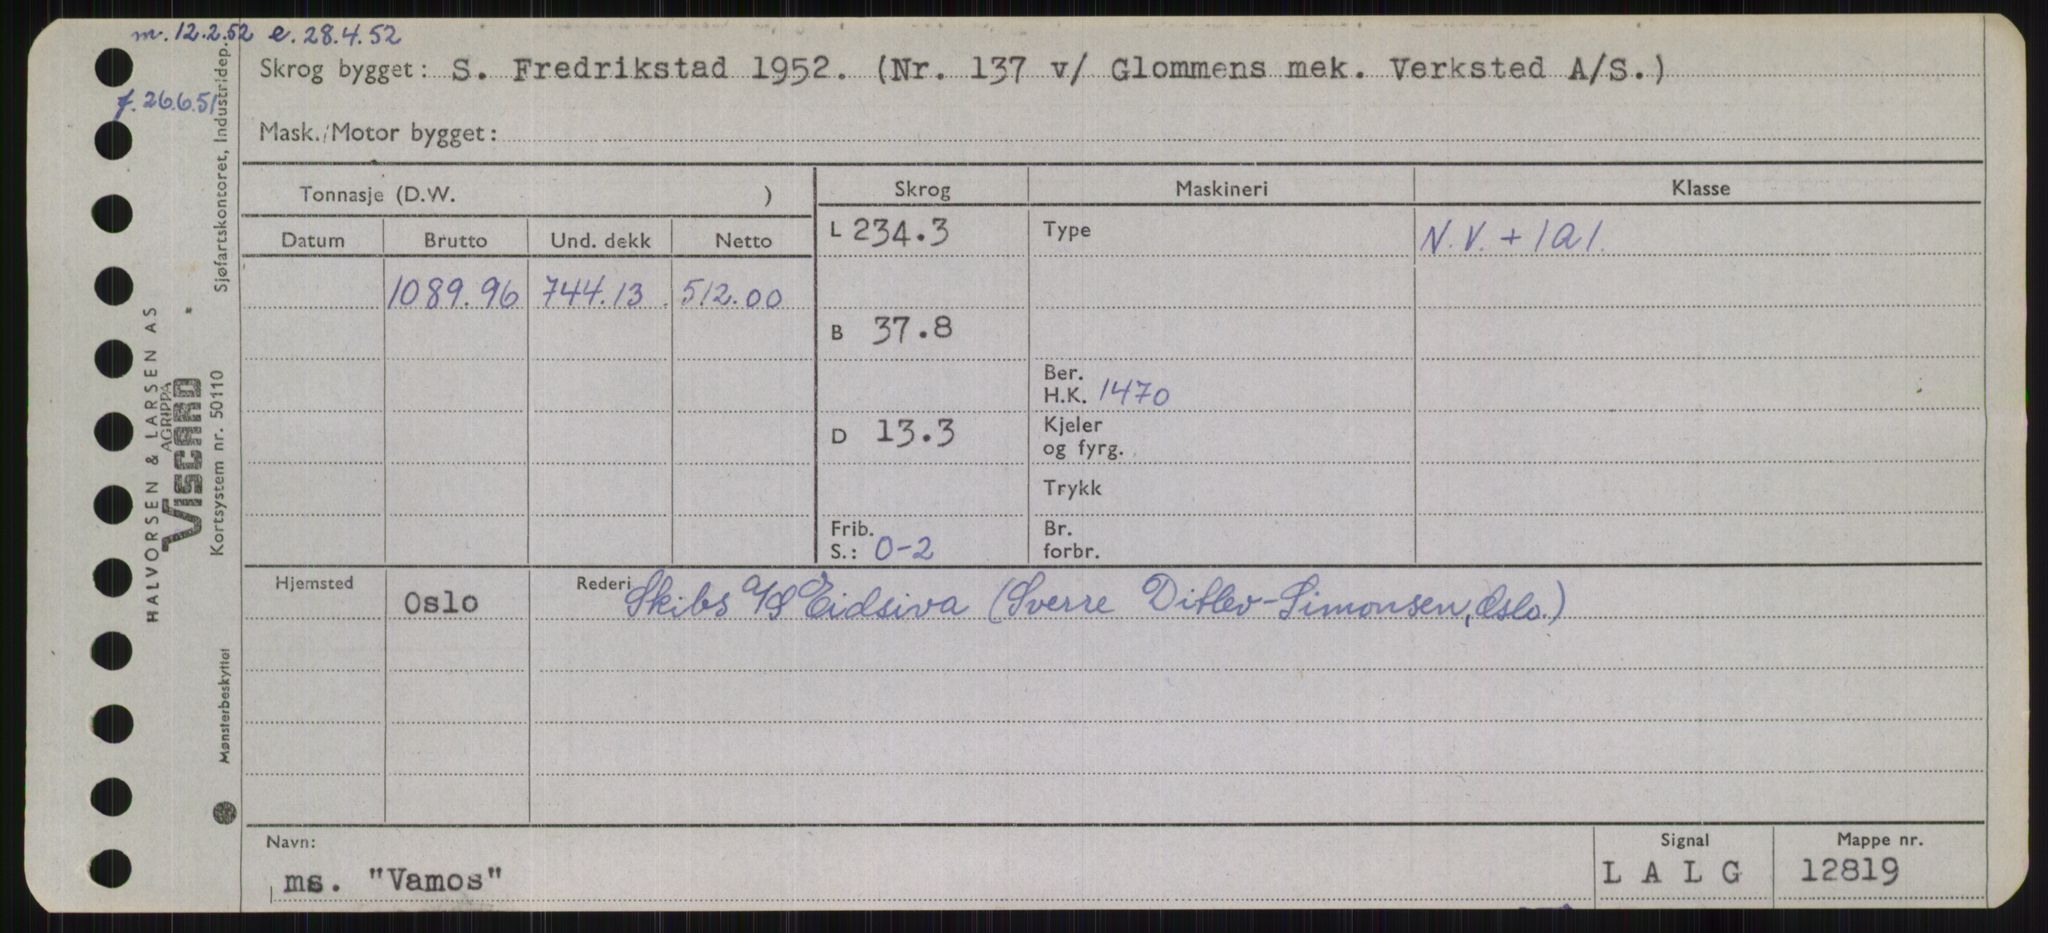 m. 12.2.52 e. 28.4.52
f. 26.6.51
Skrog bygget: S. Fredrikstad 1952. (Nr. 137 v/ Glommens mek. Verksted A/S.)
Mask./Motor bygget:
Tonnasje (D.W. )
Skrog
Maskineri
Klasse
Datum Brutto Und. dekk Netto
L 234.3
Type
N.V. + 1A1.
1089.96 744.13 512.00
B 37.8
Ber.
H.K. 1470
D 13.3
Kjeler
og fyrg.
Trykk
Frib.
S.: 0-2
Br.
forbr.
Hjemsted Oslo Rederi Skibs A/S Eidsiva (Sverre Ditlev-Simonsen, Oslo.)
Navn:
ms. "Vamos"
Signal
L A L G
Mappe nr.
12819
HALVORSEN & LARSEN AS
AGRIPPA
VISCARD
Sjøfartskontoret, Industridep.
Kortsystem nr. 50110
Mønsterbeskyttet